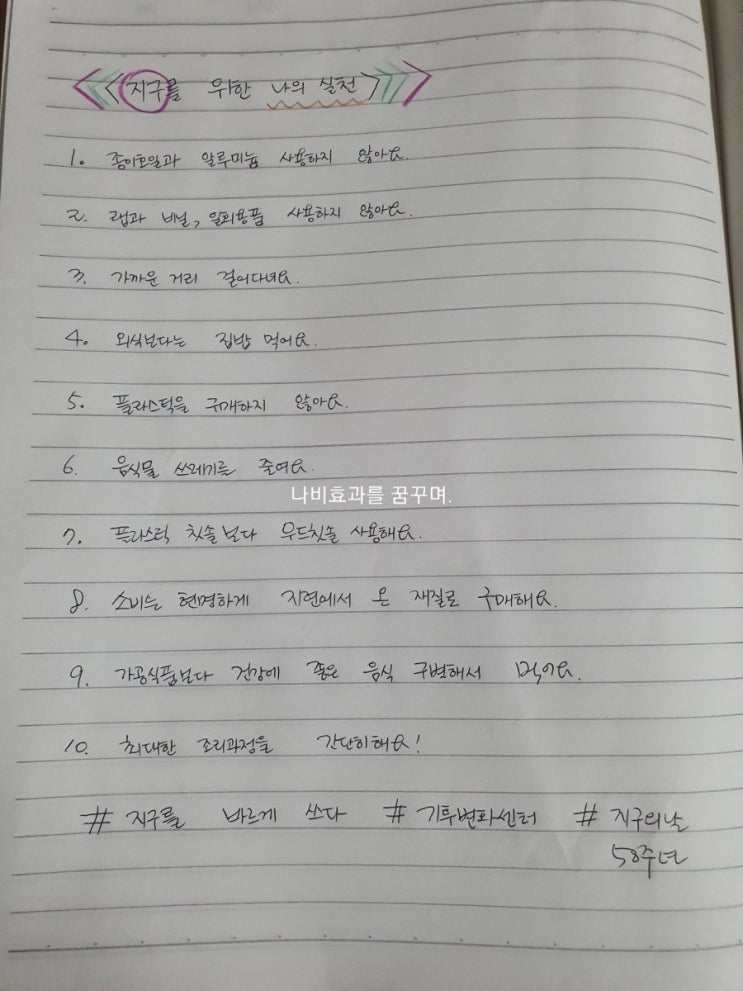 <<지구를 위한 나의 실천>>
1. 종이호일과 알루미늄 사용하지 않아요.
2. 랩과 비닐, 일회용품 사용하지 않아요.
3. 가까운 거리 걸어다녀요.
4. 외식보다는 집밥 먹어요.
5. 플라스틱을 구매하지 않아요.
6. 음식물 쓰레기를 줄여요.
나비효과를 꿈꾸며.
7. 플라스틱 칫솔보다 우드칫솔 사용해요.
8. 소비는 현명하게 자연에서 온 재질로 구매해요.
9. 가공식품보다 건강에 좋은 음식 구별해서 먹어요.
10. 최대한 조리과정을 간단히해요!
# 지구를 바르게 쓰다 # 기후변화센터 # 지구의날
50주년